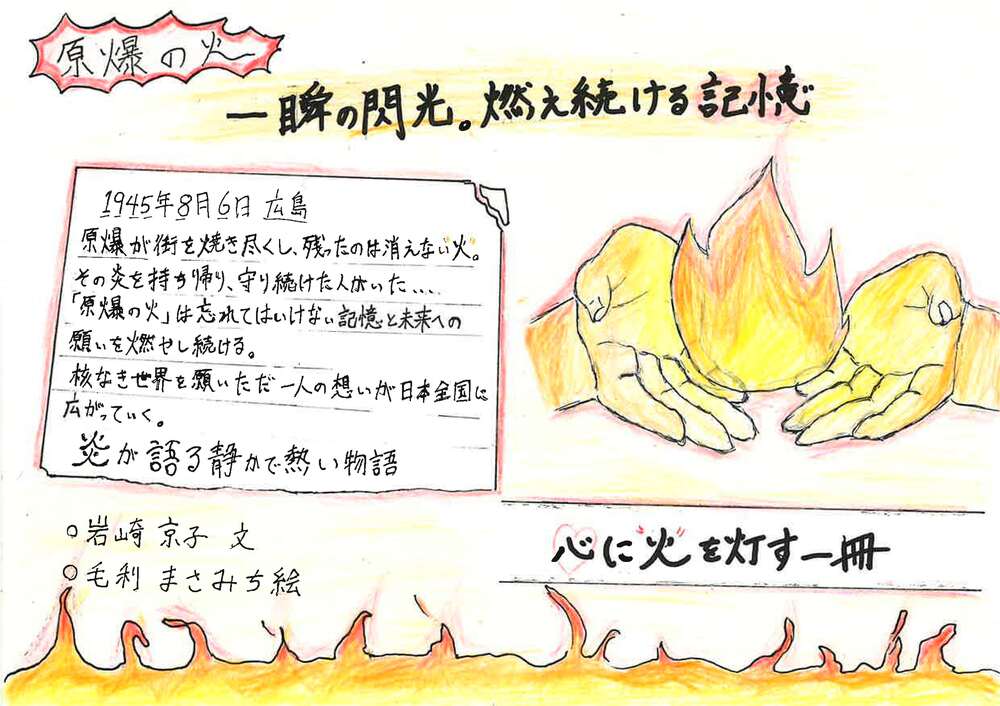 原爆の火
一瞬の閃光。燃え続ける記憶
1945年8月6日 広島
原爆が街を焼き尽くし、残ったのは消えない"火"。
その炎を持ち帰り、守り続けた人がいた....
「原爆の火」は忘れてはいけない記憶と未来への
願いを燃やし続ける。
核なき世界を願いただ一人の想いが日本全国に
広がっていく。
炎が語る静かで熱い物語
○岩崎 京子 文
○毛利 まさみち絵
心に"火"を灯す一冊